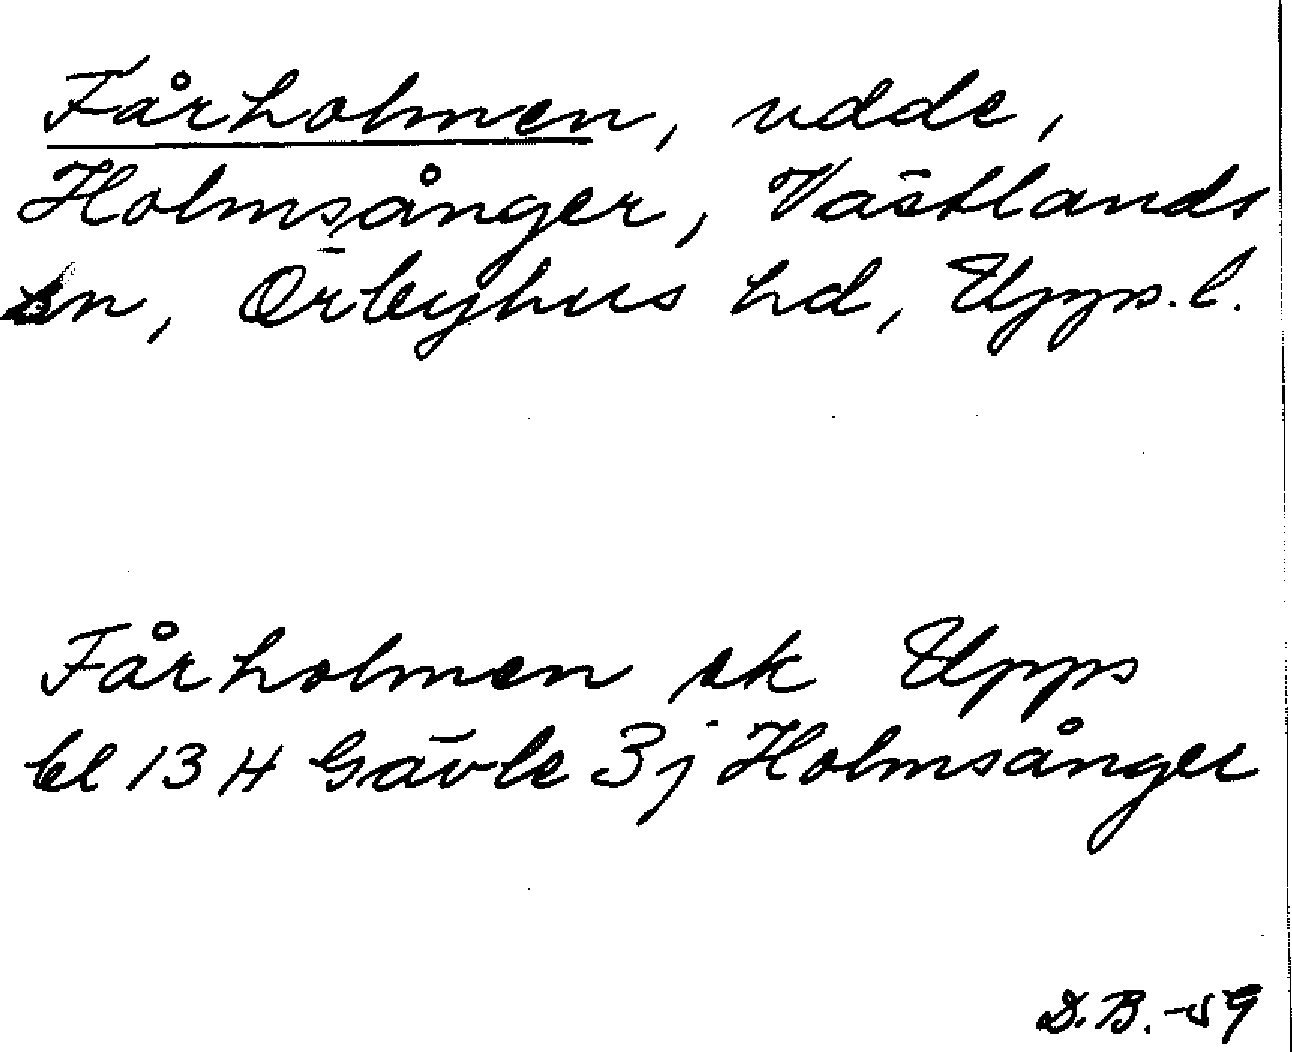 Fårholmen, udde,
Holmsånger, Västlands
sn, Örbyhus hd, Upps.l.
Fårholmen ek Upps
bl 13 H Gävle 3j Holmsånger
D.B. -59